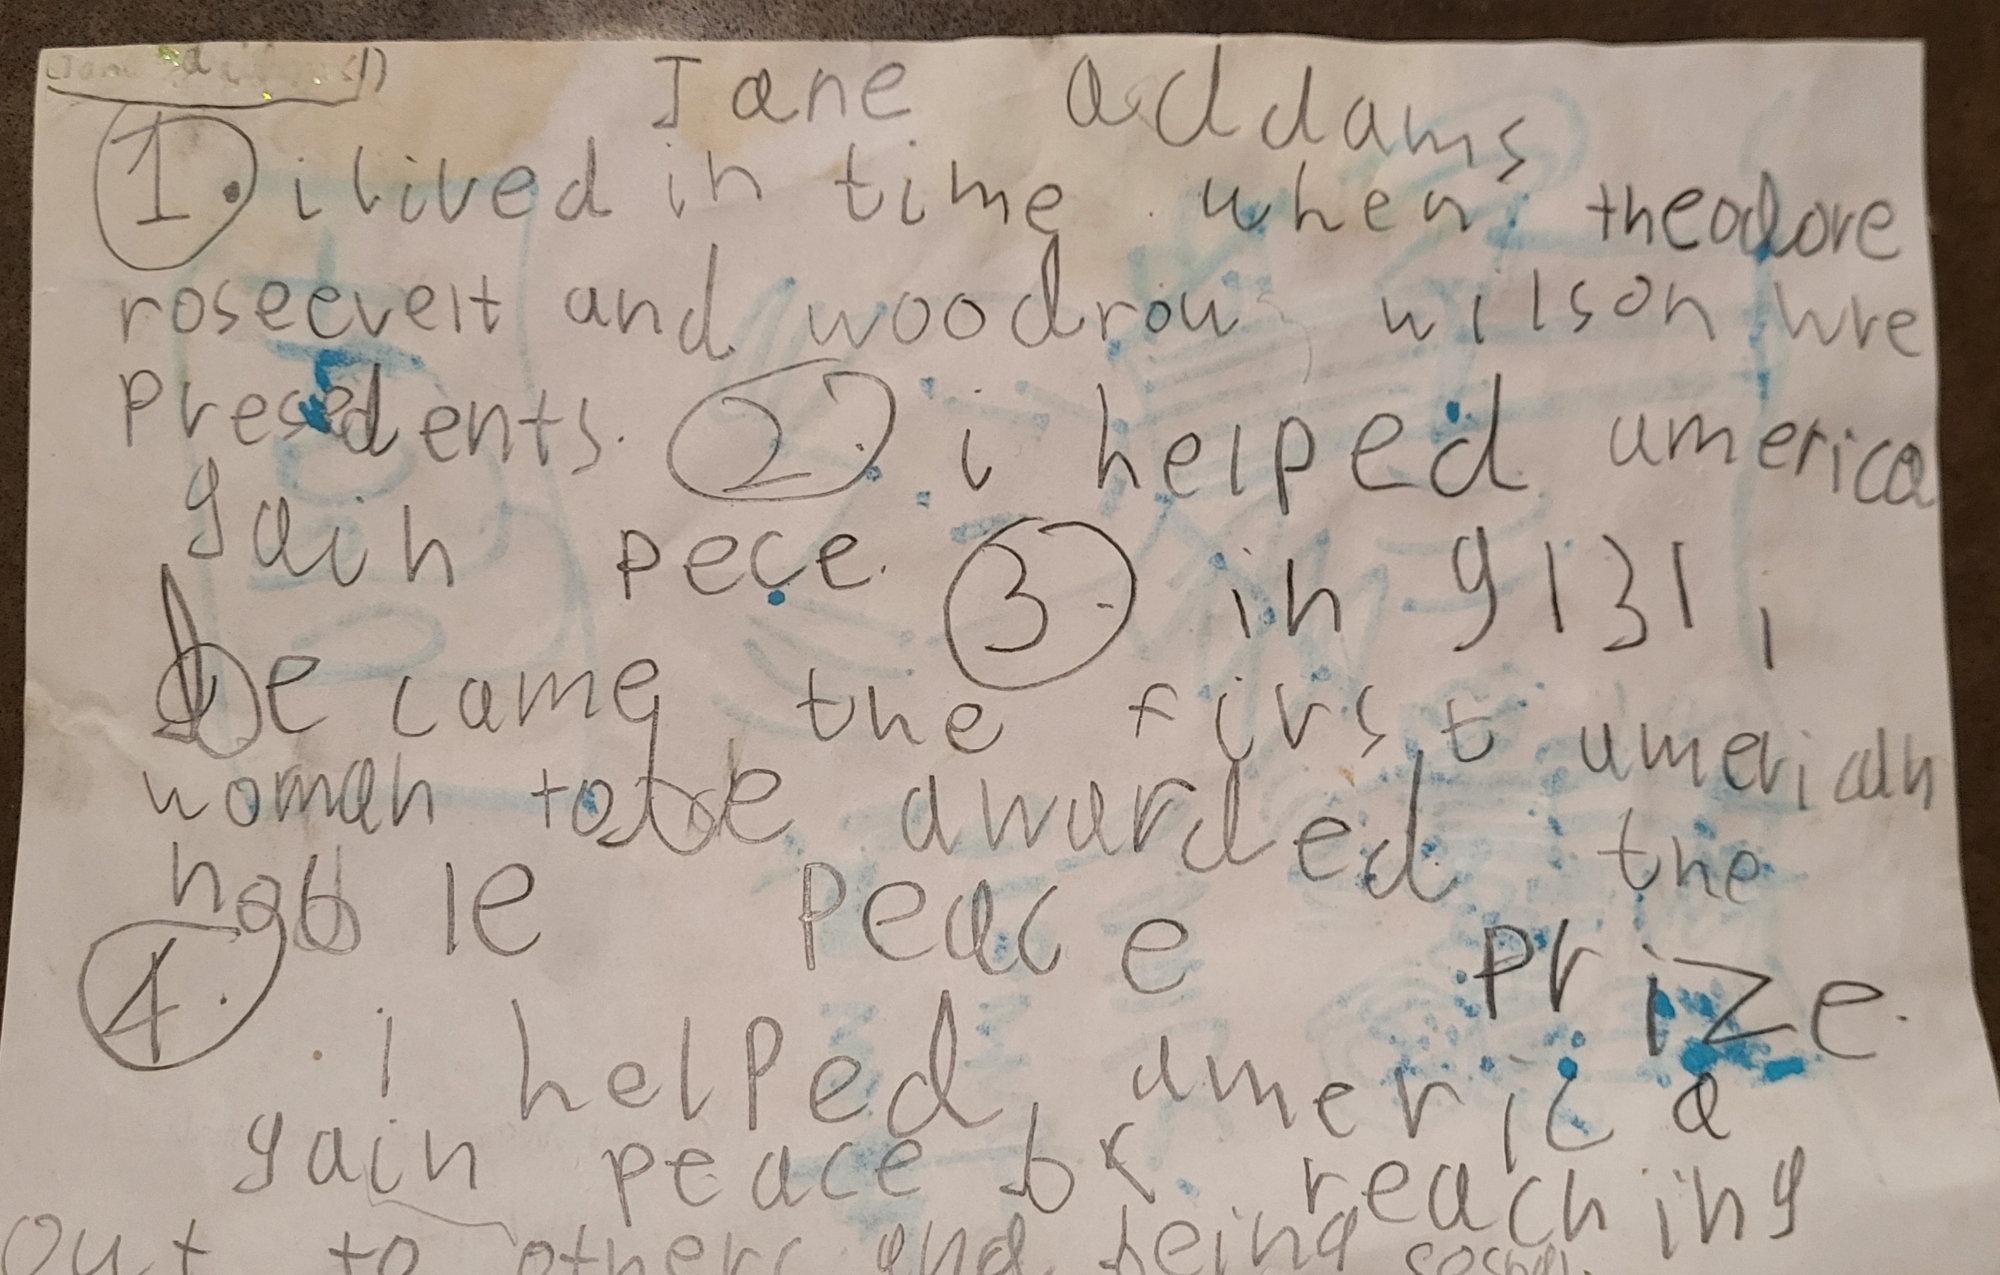 Jane addams
1. i lived in time when theodore
roseevelt and woodrow wilson wre
presedents. 2. i helped america
gain pece. 3. in 9131, i
be came the first american
woman to be awarded the
noble peace prize.
4. i helped america
gain peace by reaching
out to others and being